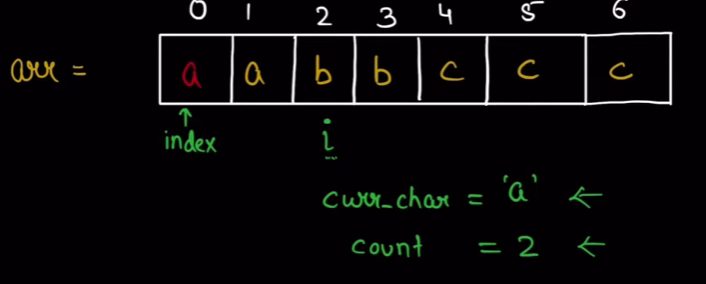 0 1 2 3 4 5 6
arr = a a b b c c c
index i
curr_char = 'a' ←
count = 2 ←